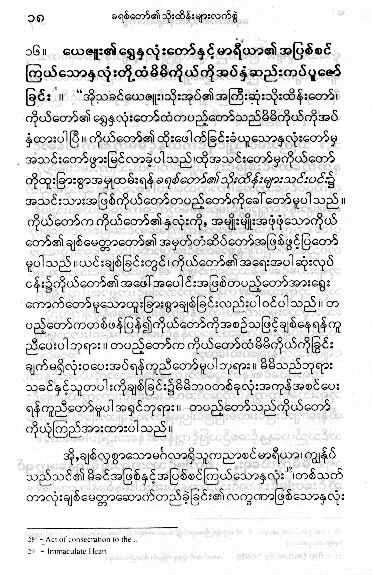 ၁၈ ခရစ်တော်၏သိုးထိန်းများလက်စွဲ
၁၆။ ယေဇူး၏ရွှေနှလုံးတော်နှင့်မာရီယာ၏အပြစ်စင်
ကြယ်သောနှလုံးတို့ထံမိမိကိုယ်ကိုအပ်နှံဆည်းကပ်ပူဇော်
ခြင်း ။ “အိုသခင်ယေဇူး၊သိုးအုပ်၏အကြီးဆုံးသိုးထိန်းတော်၊
ကိုယ်တော်၏ရွှေနှလုံးတော်ထံတပည့်တော်သည်မိမိကိုယ်ကိုအပ်
နှံထားပါပြီ။ ကိုယ်တော်၏ထိုးဖေါက်ခြင်းခံယူသောနှလုံးတော်မှ
အသင်းတော်ဖွားမြင်လာခဲ့ပါသည်၊ထိုအသင်းတော်မှကိုယ်တော်
ကိုထူးခြားစွာအမှုထမ်းရန်ခရစ်တော်၏သိုးထိန်းများသင်းပင်း၌
အသင်းသားအဖြစ်ကိုယ်တော်တပည့်တော်ကိုခေါ်တော်မူပါသည်။
ကိုယ်တော်က ကိုယ်တော်၏နှလုံးကို, အမျိုးမျိုးအဖုံဖုံသောကိုယ်
တော်၏ချစ်မေတ္တာတော်၏အမှတ်တံဆိပ်တော်အဖြစ်ဖွင့်ပြတော်
မူပါသည်။ယင်းချစ်ခြင်းတွင်၊ ကိုယ်တော်၏အရေးအပါဆုံးလုပ်
ငန်း၌ကိုယ်တော်၏အဖေါ်အပေါင်းအဖြစ်တပည့်တော်အားရွေး
ကောက်တော်မူသောထူးခြားစွာချစ်ခြင်းလည်းပါဝင်ပါသည်။ တ
ပည့်တော်ကတစ်ဖန်ပြန်၍ကိုယ်တော်ကိုအစဉ်သဖြင့်ချစ်နေရန်ကူ
ညီပေးပါဘုရား။ တပည့်တော်က ကိုယ်တော်ထံမိမိကိုယ်ကိုခြွင်း
ချက်မရှိလုံးဝပေးအပ်ရန်ကူညီတော်မူပါဘုရား။ မိမိသည်ဘုရား
သခင်နှင့်သူတပါးကိုချစ်ခြင်း၌မိမိဘဝတစ်ခုလုံးအကုန်အစင်ပေး
ရန်ကူညီတော်မူပါအရှင်ဘုရား။ တပည့်တော်သည်ကိုယ်တော်
ကိုယုံကြည်အားထားပါသည်။
အို,ချစ်လှစွာသောမင်္ဂလာရှိသူကညာစင်မာရီယာ၊ကျွန်ုပ်
သည်သင်၏မိခင်အဖြစ်နှင့်အပြစ်စင်ကြယ်သောနှလုံး၊တစ်သက်
တာလုံးချစ်မေတ္တာဆောက်တည်ခဲ့ခြင်း၏လက္ခဏာဖြစ်သောနှလုံး
28 - Act of consecration to the ..
29 - Immaculate Heart